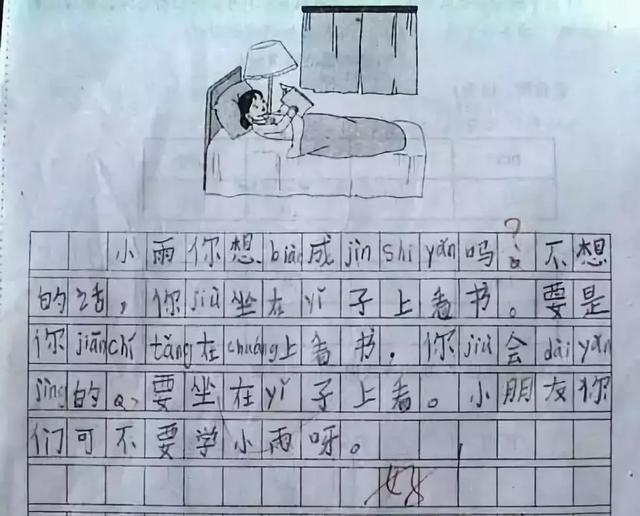 小雨你想biàn成jìn shì yǎn吗？不想
的话，你jiù坐在yǐ子上看书。要是
你jiān chí tǎng在chuáng上看书，你jiù会dài yǎn
jìng的。要坐在yǐ子上看。小朋友你
们可不要学小雨呀。
好